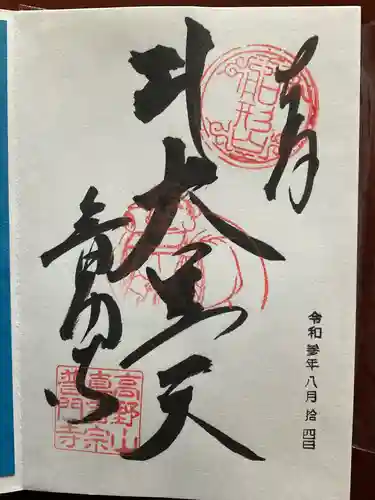 奉拝
大黒天
普門寺
高野山
真言宗
普門寺
令和参年八月拾四日